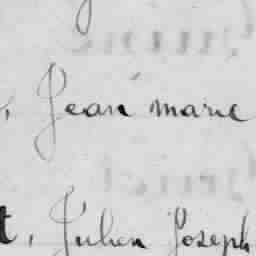 , Jean marie
t, Julien Joseph